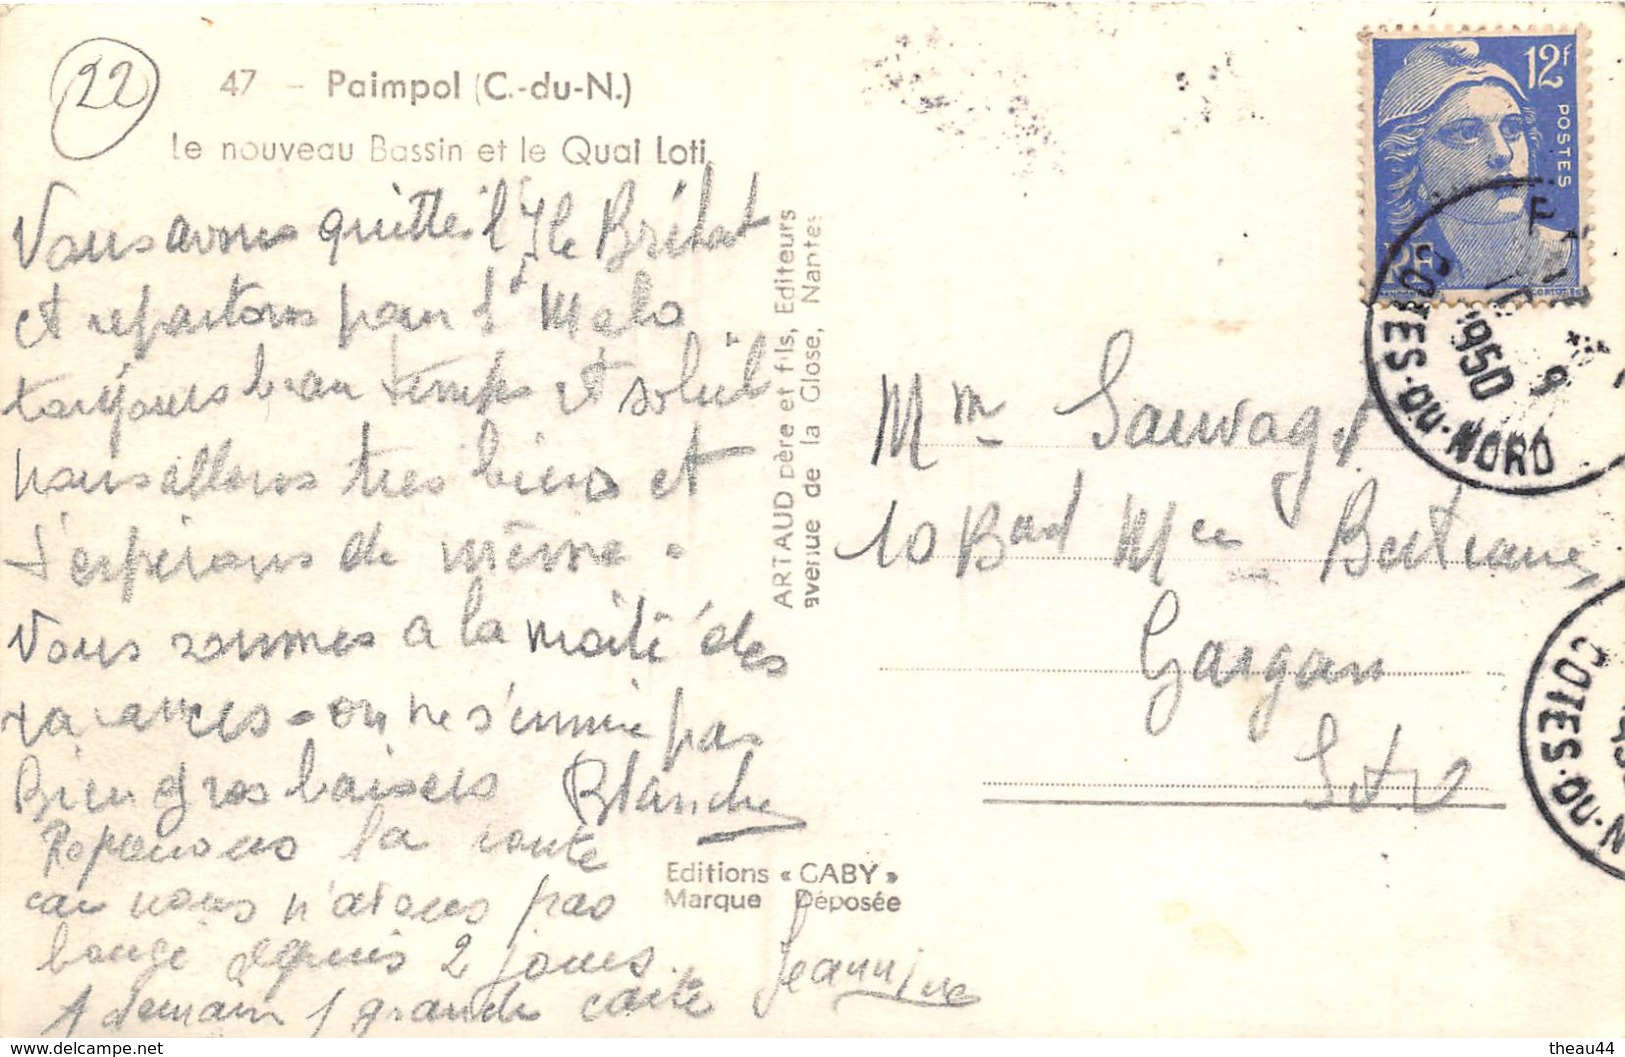 22
47 - Paimpol (C.-du-N.)
Le nouveau Bassin et le Quai Loti.
Nous avons quitté l'Ile Bréhat
et repartons pour St Malo
toujours beau temps et soleil
nous allons très bien et
t'espérons de même.
Nous sommes a la moitié des
vacances - on ne s'ennuie pas
Bien gros baisers Blanche
Reprenons la route
car nous n'avons pas
bougé depuis 2 jours.
A demain 1 grande carte Jeannine
ARTAUD père et fils, Editeurs
avenue de la Close, Nantes
Editions « GABY »
Marque Déposée
12f
POSTES
RF
COTES-DU-NORD
1950
Mme Sauvage
10 Bard Mce Berteaux
Gargan
S et O
COTES-DU-N
theau44